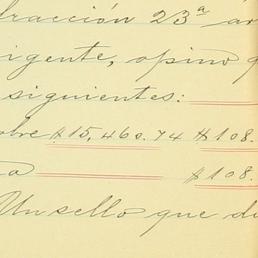 fracción 23ª ar
igente, opino q
siguientes:
obre $15,460.74 $108.
$108.
Un sello que di